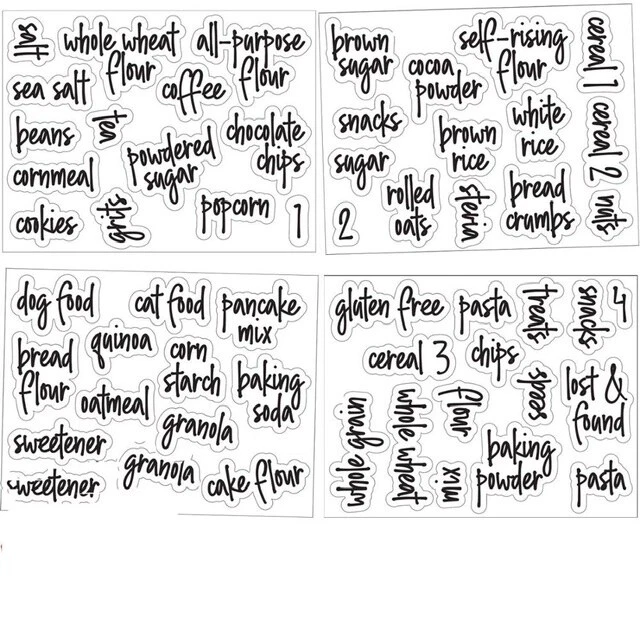 salt
whole wheat
flour
all-purpose
flour
sea salt
coffee
beans
tea
chocolate
chips
powdered
sugar
cornmeal
cookies
grits
popcorn
1
brown
sugar
cocoa
powder
self-rising
flour
cereal 1
snacks
brown
rice
white
rice
cereal 2
sugar
2
rolled
oats
stevia
bread
crumbs
nuts
dog food
cat food
pancake
mix
bread
flour
quinoa
corn
starch
baking
soda
oatmeal
granola
sweetener
sweetener
granola
cake flour
gluten free
pasta
treats
snacks
4
cereal 3
chips
seeds
lost &
found
whole grain
whole wheat
flour
mix
baking
powder
pasta